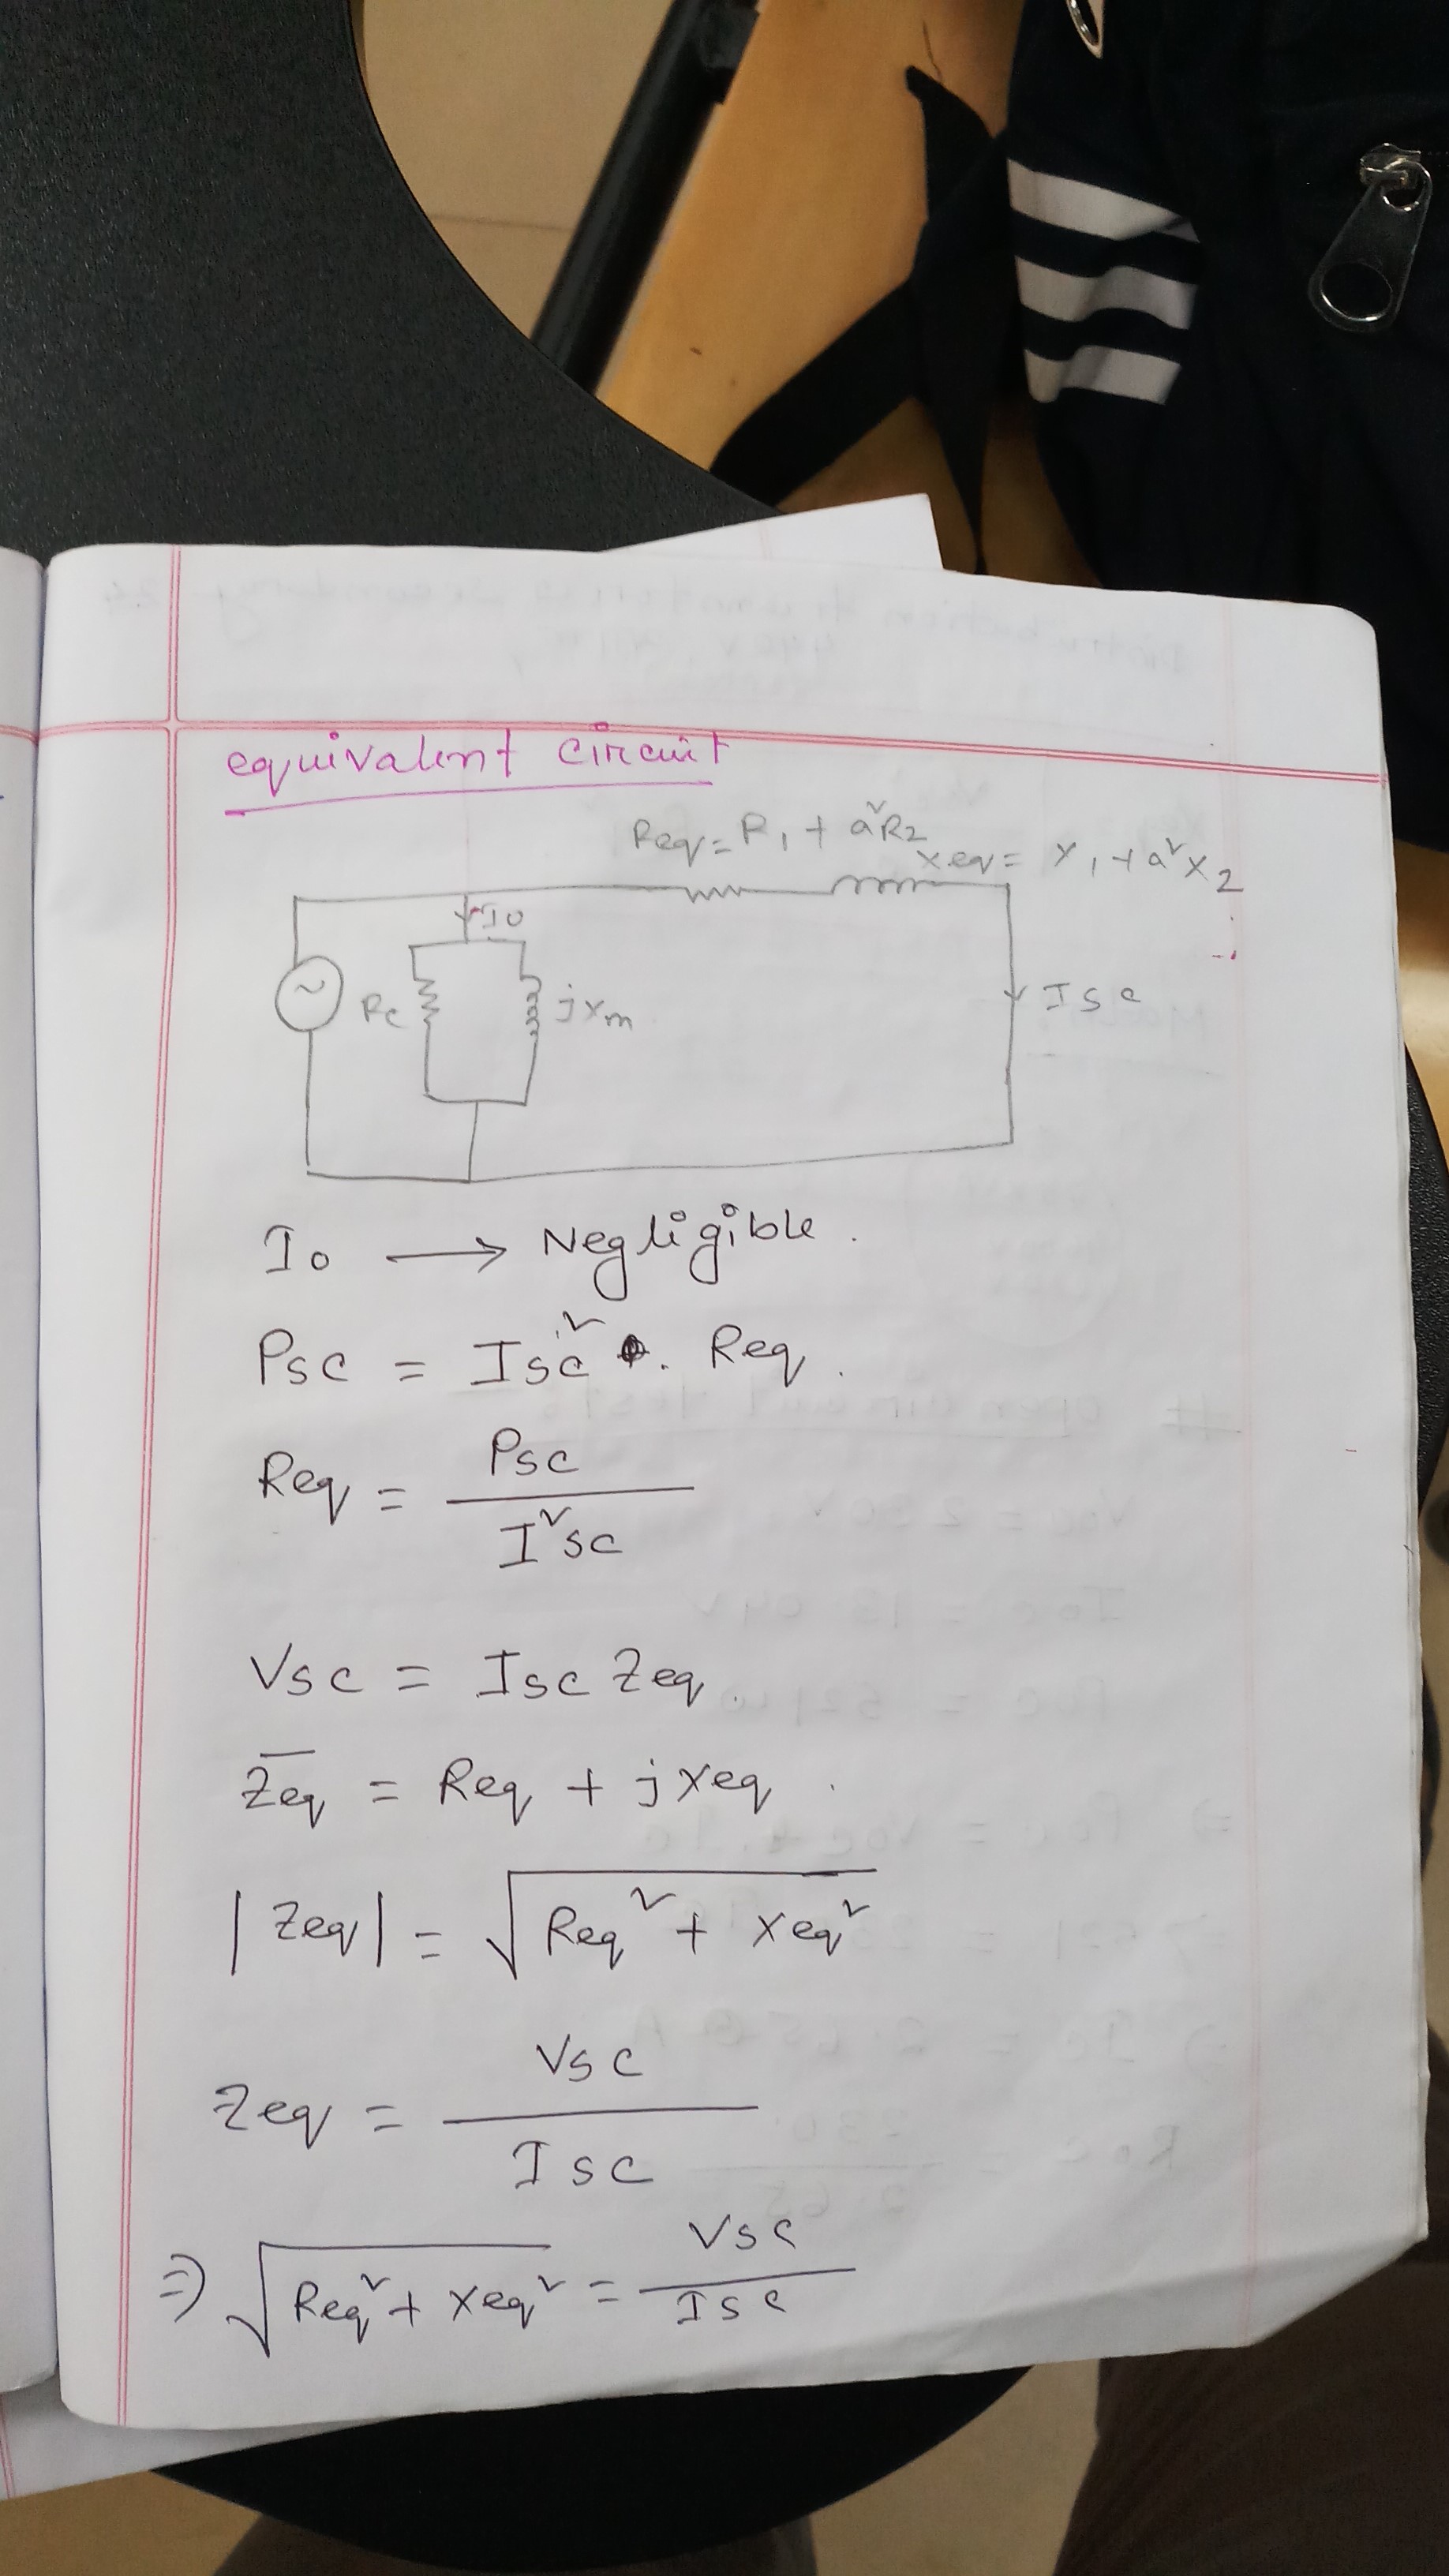 equivalent circuit
Req = R₁ + a²R₂
xeq = x₁ + a²x₂
I₀
Rc
jxm
Isc
I₀ → Negligible.
Psc = Isc² . Req.
Req = Psc / I²sc
Vsc = Isc Zeq.
Z̅eq = Req + jxeq.
|Zeq| = √(Req² + xeq²)
Zeq = Vsc / Isc
⇒ √(Req² + xeq²) = Vsc / Isc